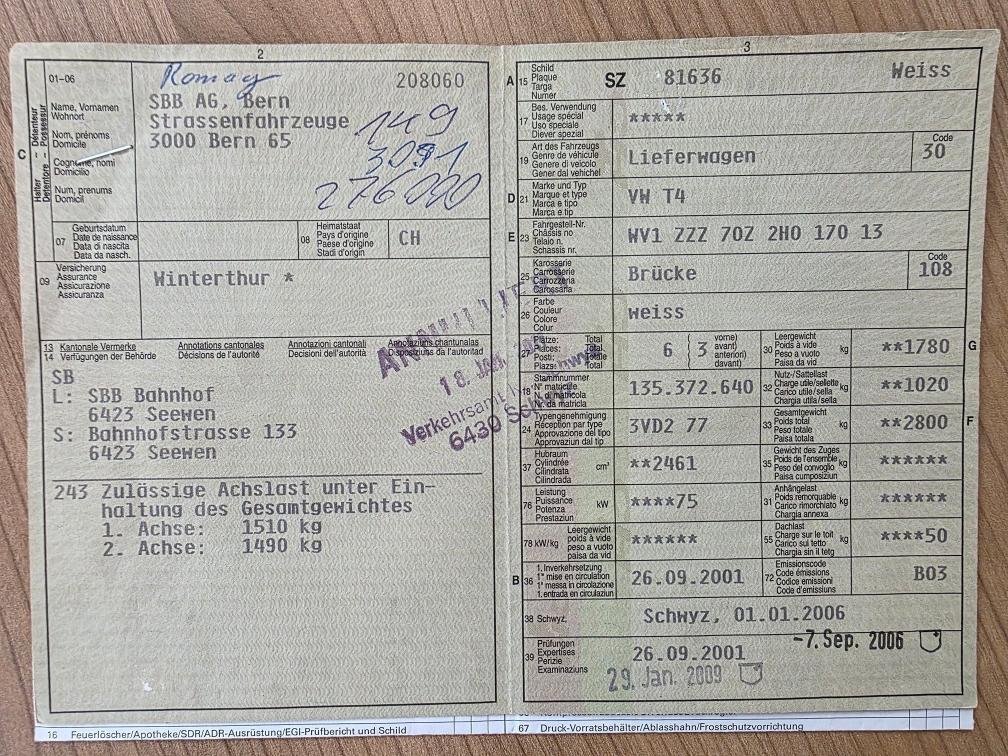 2
01-06
Romay
208060
C
Halter - Détenteur
Detentore - Possessur
Name, Vornamen
Wohnort
Nom, prénoms
Domicile
Cognome, nomi
Domicilio
Num, prenums
Domicil
SBB AG, Bern
Strassenfahrzeuge
3000 Bern 65
149
3091
276000
07
Geburtsdatum
Date de naissance
Data di nascita
Data da nasch.
08
Heimatstaat
Pays d'origine
Paese d'origine
Stadi d'origin
CH
09
Versicherung
Assurance
Assicurazione
Assicuranza
Winterthur *
13 Kantonale Vermerke
14 Verfügungen der Behörde
Annotations cantonales
Décisions de l'autorité
Annotazioni cantonali
Decisioni dell'autorità
Annotaziuns chantunales
Disposiziuns da l'autoritad
SB
L: SBB Bahnhof
6423 Seewen
S: Bahnhofstrasse 133
6423 Seewen
243 Zulässige Achslast unter Ein-
haltung des Gesamtgewichtes
1. Achse: 1510 kg
2. Achse: 1490 kg
18. JAN.
Verkehrsamt
6430
3
A 15
Schild
Plaque
Targa
Numer
SZ 81636 Weiss
17
Bes. Verwendung
Usage spécial
Uso speciale
Diever spezial
*****
19
Art des Fahrzeugs
Genre de véhicule
Genere di veicolo
Gener dal vehichel
Lieferwagen
Code
30
D 21
Marke und Typ
Marque et type
Marca e tipo
Marca e tip
VW T4
E 23
Fahrgestell-Nr.
Châssis no
Telaio n.
Schassis nr.
WV1 ZZZ 70Z 2H0 170 13
25
Karosserie
Carrosserie
Carrozzeria
Carossaria
Brücke
Code
108
26
Farbe
Couleur
Colore
Colur
weiss
27
Plätze: Total
Places: Total
Posti: Totale
Plazs: Total
6 { 3
vorne)
avant)
anteriori)
davant)
30
Leergewicht
Poids à vide
Peso a vuoto
Paisa da vid
kg
**1780
G
18
Stammnummer
N° matricule
N. di matricola
Nr. da matricla
135.372.640
32
Nutz-/Sattellast
Charge utile/sellette
Carico utile/sella
Chargia utila/sella
kg
**1020
24
Typengenehmigung
Réception par type
Approvazione del tipo
Approvaziun dal tip
3VD2 77
33
Gesamtgewicht
Poids total
Peso totale
Paisa totala
kg
**2800
F
37
Hubraum
Cylindrée
Cilindrata
Cilindrada
cm³
**2461
35
Gewicht des Zuges
Poids de l'ensemble
Peso del convoglio
Paisa cumposiziun
kg
******
76
Leistung
Puissance
Potenza
Prestaziun
kW
****75
31
Anhängelast
Poids remorquable
Carico rimorchiato
Chargia annexa
kg
******
78 kW/kg
Leergewicht
poids à vide
peso a vuoto
paisa da vid
******
55
Dachlast
Charge sur le toit
Carico sul tetto
Chargia sin il tetg
kg
****50
B 36
1. Inverkehrsetzung
1re mise en circulation
1a messa in circolazione
1. entrada en circulaziun
26.09.2001
72
Emissionscode
Code émissions
Codice emissioni
Code d'emissiuns
B03
38 Schwyz,
Schwyz, 01.01.2006
39
Prüfungen
Expertises
Perizie
Examinaziuns
26.09.2001
-7. Sep. 2006
29. Jan. 2009
16 Feuerlöscher/Apotheke/SDR/ADR-Ausrüstung/EGI-Prüfbericht und Schild
67 Druck-Vorratsbehälter/Ablasshahn/Frostschutzvorrichtung